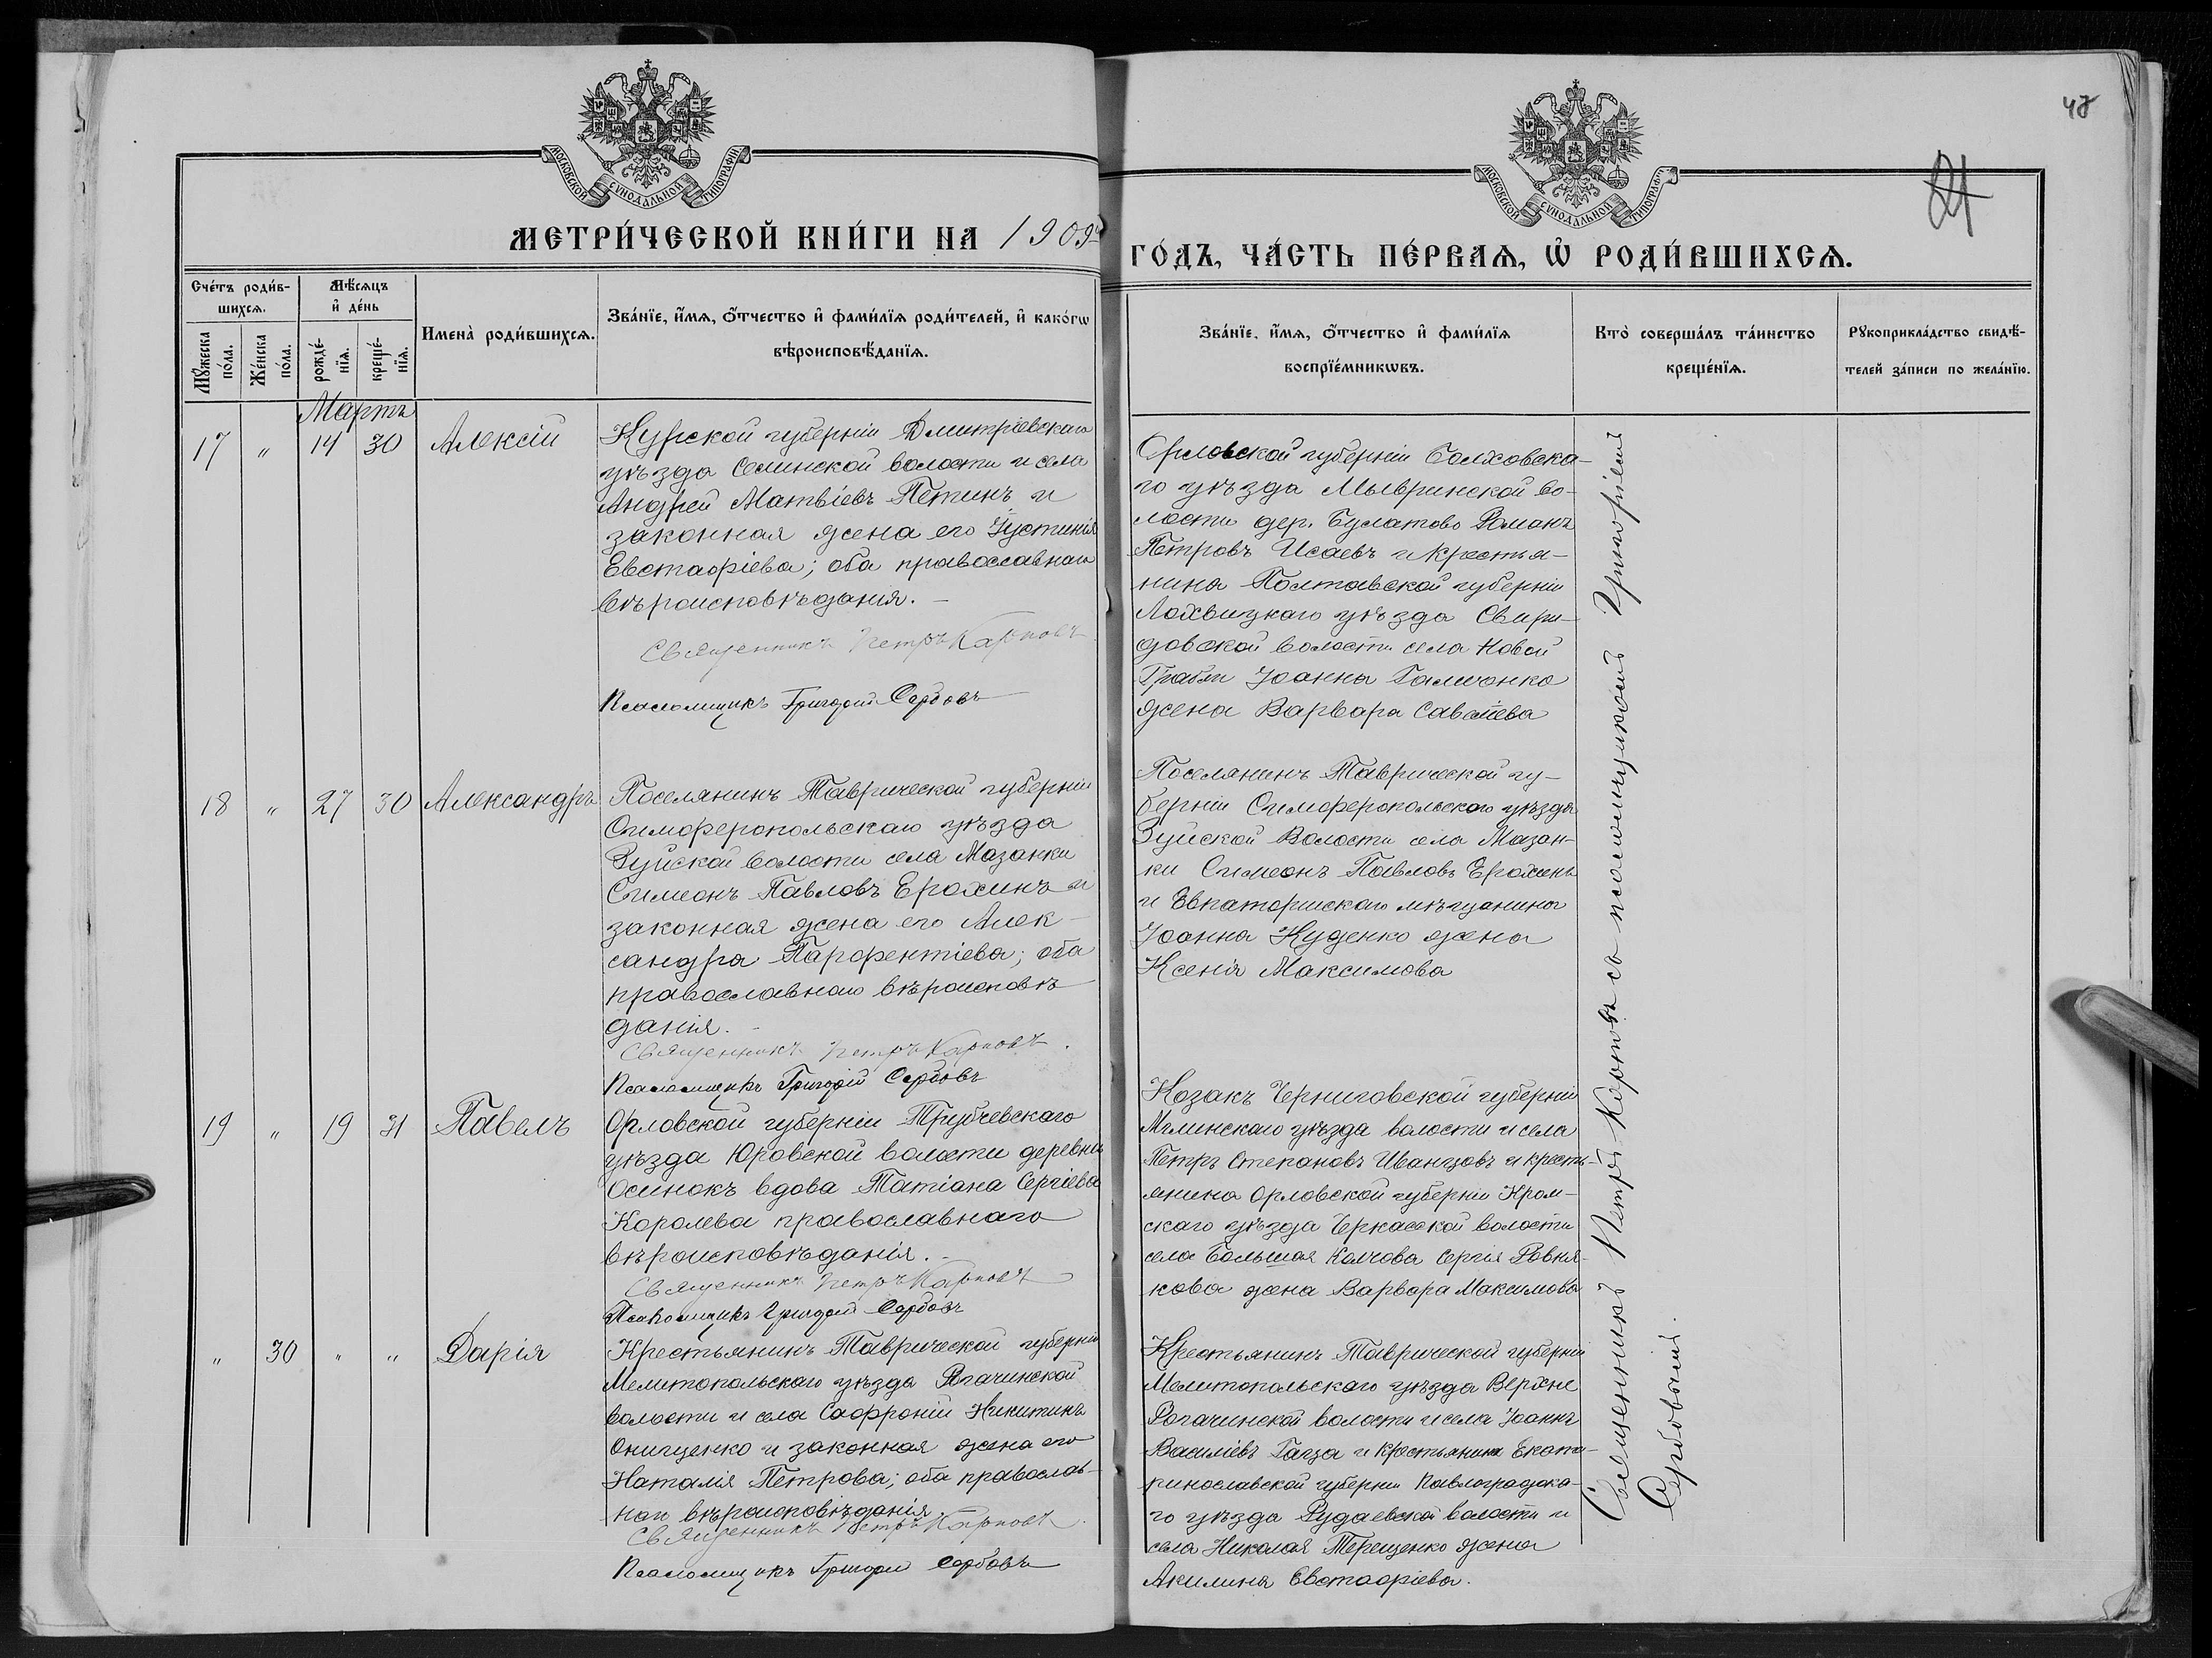 48
21
МОСКОВСКОЙ СУНОДАЛЬНОЙ ТИПОГРАФІИ
МОСКОВСКОЙ СУНОДАЛЬНОЙ ТИПОГРАФІИ
МЕТРИ́ЧЕСКОЙ КНИ́ГИ НА 1909 ГО́ДЪ, ЧА́СТЬ ПЕ́РВАѦ, Ѡ РОДИ́ВШИХСѦ.
Сче́тъ роди́в-
шихсѧ.
Мѣ́сѧцъ
и҆ де́нь
Мꙋ́жеска
по́ла.
Же́нска
по́ла.
рожде́-
нїѧ.
креще́-
нїѧ.
Имена̀ роди́вшихсѧ.
Зва́нїе, и҆́мѧ, ѻ҆́тчество и҆ фами́лїѧ роди́телей, и҆ како́гѡ
вѣроисповѣ́данїѧ.
Зва́нїе, и҆́мѧ, ѻ҆́тчество и҆ фами́лїѧ
воспрїе́мникѡвъ.
Кто̀ соверша́лъ та́инство
креще́нїѧ.
Рꙋкоприкла́дство свидѣ́-
телей за́писи по жела́нїю.
Мартъ
17 " 14 30 Алексій
Курской губерніи Дмитріевскаго
уѣзда Селинской волости и села
Андрей Матвіевъ Петинъ и
законная жена его Іустинія
Евстафіева; оба православнаго
вѣроисповѣданія. –
Священникъ Петръ Карповъ
Псаломщикъ Григорій Сербовъ
Орловской губерніи Болховска-
го уѣзда Мывринской во-
лости дер. Булатово Романъ
Петровъ Исаевъ и крестья-
нина Полтавской губерніи
Лохвицкаго уѣзда Свири-
довской волости села Новой
Гребли Іоанна жена Варвара Савелiева
18 " 27 30 Александръ
Поселянинъ Таврической губерніи
Симферопольскаго уѣзда
Зуйской волости села Мазанки
Симеонъ Павловъ Ерохинъ и
законная жена его Алек-
сандра Парфентіева; оба
православнаго вѣроисповѣ
данія. –
Священникъ Петръ Карповъ.
Псаломщикъ Григорій Сербовъ
Поселянинъ Таврической гу-
берніи Симферопольскаго уѣзда
Зуйской Волости села Мазан-
ки Симеонъ Павловъ Ерохинъ
и Евпаторійскаго мѣщанина
Іоанна Куценко жена
Ксенія Максимова
19 " 19 31 Павелъ
Орловской губерніи Трубчевскаго
уѣзда Юровской волости деревни
Осинокъ вдова Татіана Сергіева
Королева православнаго
вѣроисповѣданія. –
Священникъ Петръ Карповъ
Псаломщикъ Григорій Сербовъ
Козакъ Черниговской губерніи
Мглинскаго уѣзда волости и села
Петръ Степановъ Иванцовъ и кресть-
янина Орловской губерніи Кром-
скаго уѣзда Черкасской волости
села Большая Колчова Сергія Ровня-
кова жена Варвара Максимова
" 30 " " Дарія
Крестьянинъ Таврической губерніи
Мелитопольскаго уѣзда Рогачинской
волости и села Софроній Никитинъ
Онищенко и законная жена его
Наталія Петрова; оба православ-
наго вѣроисповѣданія
Священникъ Петръ Карповъ.
Псаломщикъ Григорій Сербовъ
Крестьянинъ Таврической губерніи
Мелитопольскаго уѣзда Верхне
Рогачинской волости и села Іоаннъ
Василіевъ и крестьянина Екате-
ринославской губерніи Павлоградска-
го уѣзда волости и
села Николая Терещенко жена
Акилина Евстафіева.
Священникъ Петръ Карповъ съ псаломщикомъ Григоріемъ
Сербовымъ.